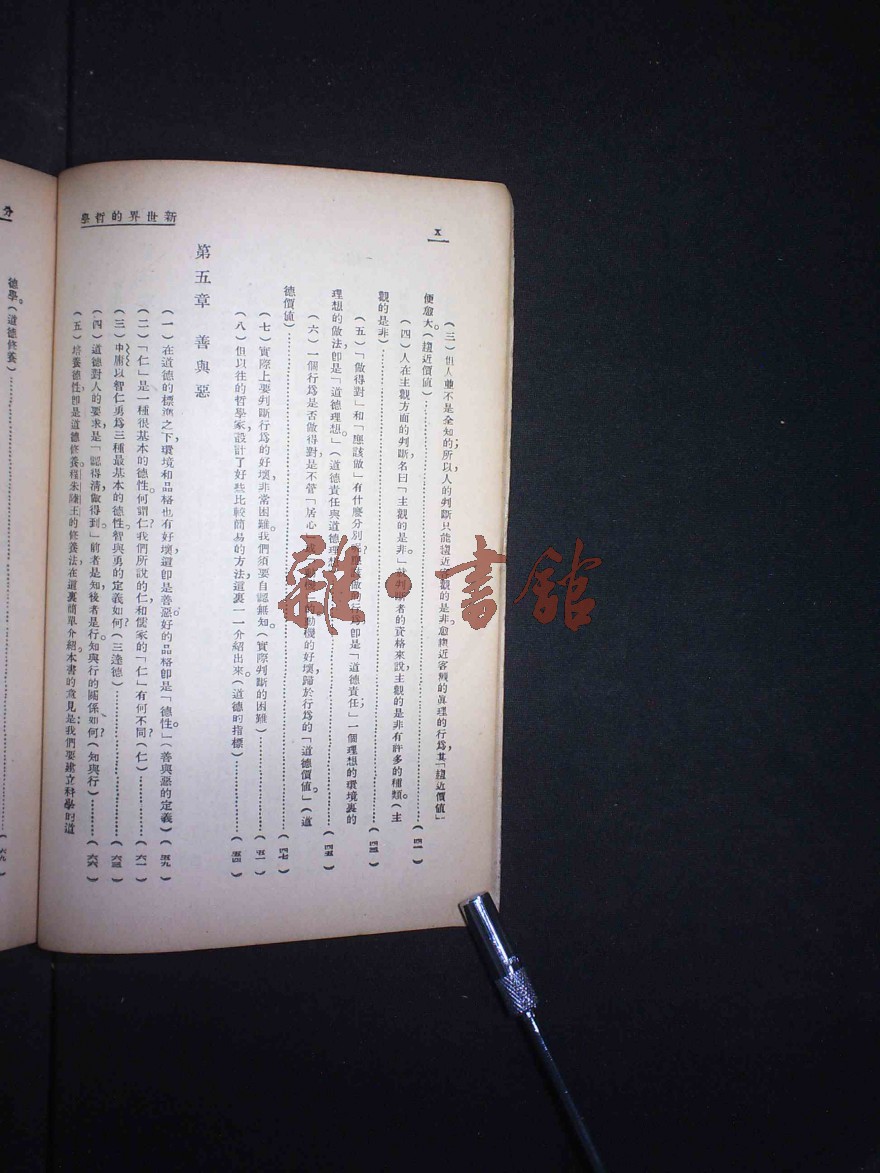 新世界的哲學
X
(三)但人並不是全知的;所以人的判斷只能趨近客觀的是非。愈趨近客觀的眞理的行爲,其「趨近價值」
便愈大。(趨近價值)………(四一)
(四)人在主觀方面的判斷,名曰「主觀的是非。」就判斷者的資格來說,主觀的是非有許多的種類。(主
觀的是非)………(四三)
(五)「做得對」和「應該做」有什麼分別呢?應該做的行爲卽是「道德責任;」一個理想的環境裏的
理想的做法,卽是「道德理想。」(道德責任與道德理想)………(四五)
(六)一個行爲是否做得對,是不管「居心」或「動機」的動機的好壞,歸於行爲的「道德價值。」(道
德價值)………(四七)
(七)實際上要判斷行爲的好壞,非常困難。我們須要自認無知。(實際判斷的困難)………(五一)
(八)但以往的哲學家,設計了好些比較簡易的方法,這裏一一介紹出來。(道德的指標)………(五四)
第五章 善與惡
(一)在道德的標準之下,環境和品格也有好壞,這卽是善惡。好的品格卽是「德性。」(善與惡的定義)(五九)
(二)「仁」是一種很基本的德性。何謂仁?我們所說的仁,和儒家的「仁」有何不同?(仁)………(六一)
(三)中庸以智仁勇爲三種最基本的德性。智與勇的定義如何?(三達德)………(六三)
(四)道德對人的要求,是「認得清,做得到。」前者是知,後者是行。知與行的關係如何?(知與行)………(六六)
(五)培養德性,卽是道德修養。程朱陸王的修養法,在這裏簡單介紹。本書的意見是:我們要建立科學的道
德學。(道德修養)………(六九
分
雜·書館